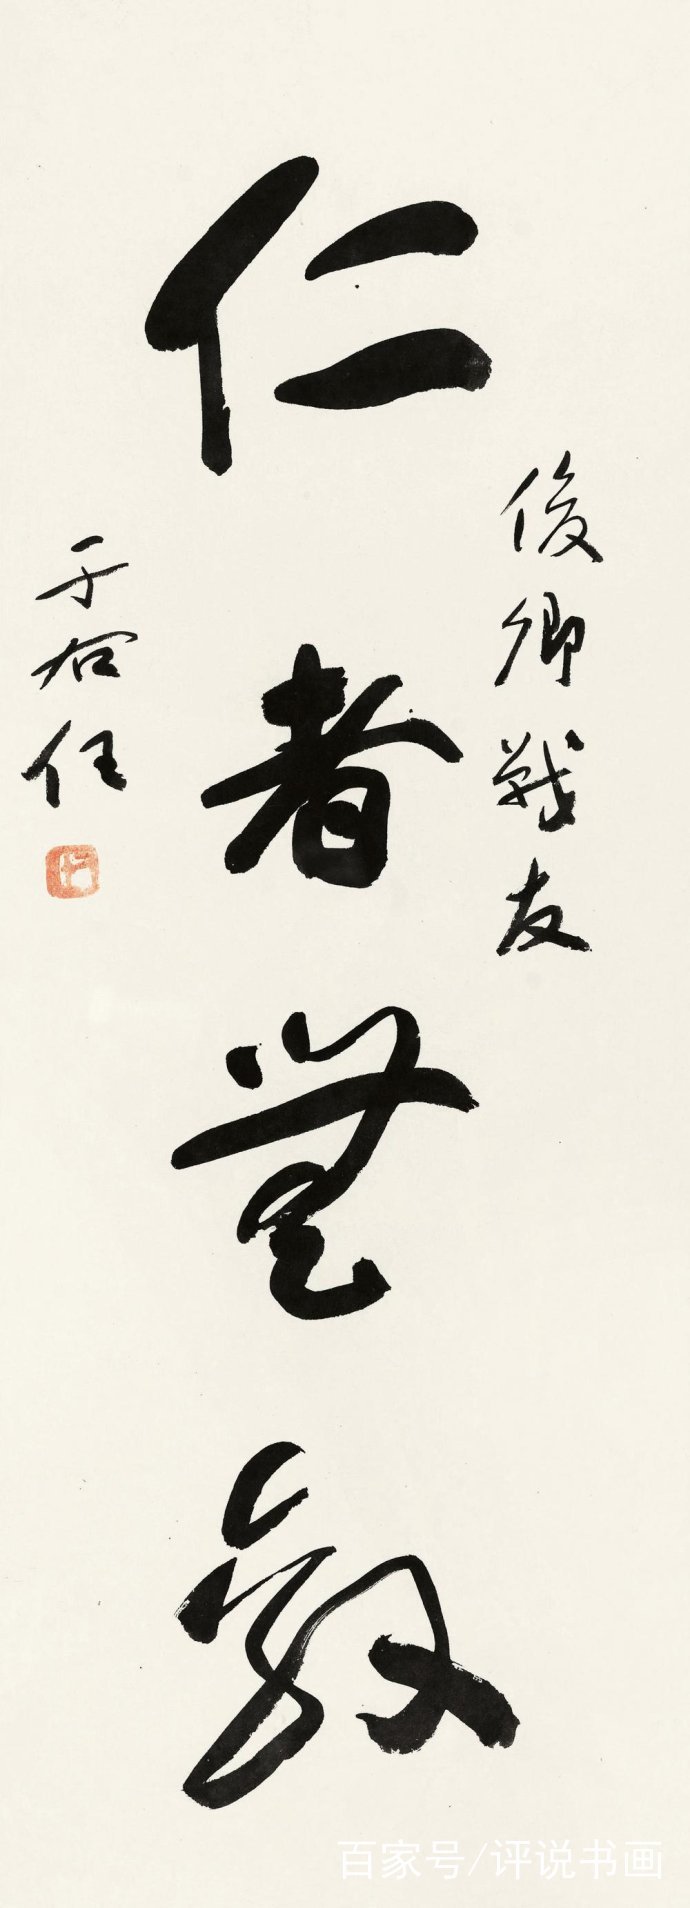 俊卿战友
仁者無敵
于右任
百家号/评说书画